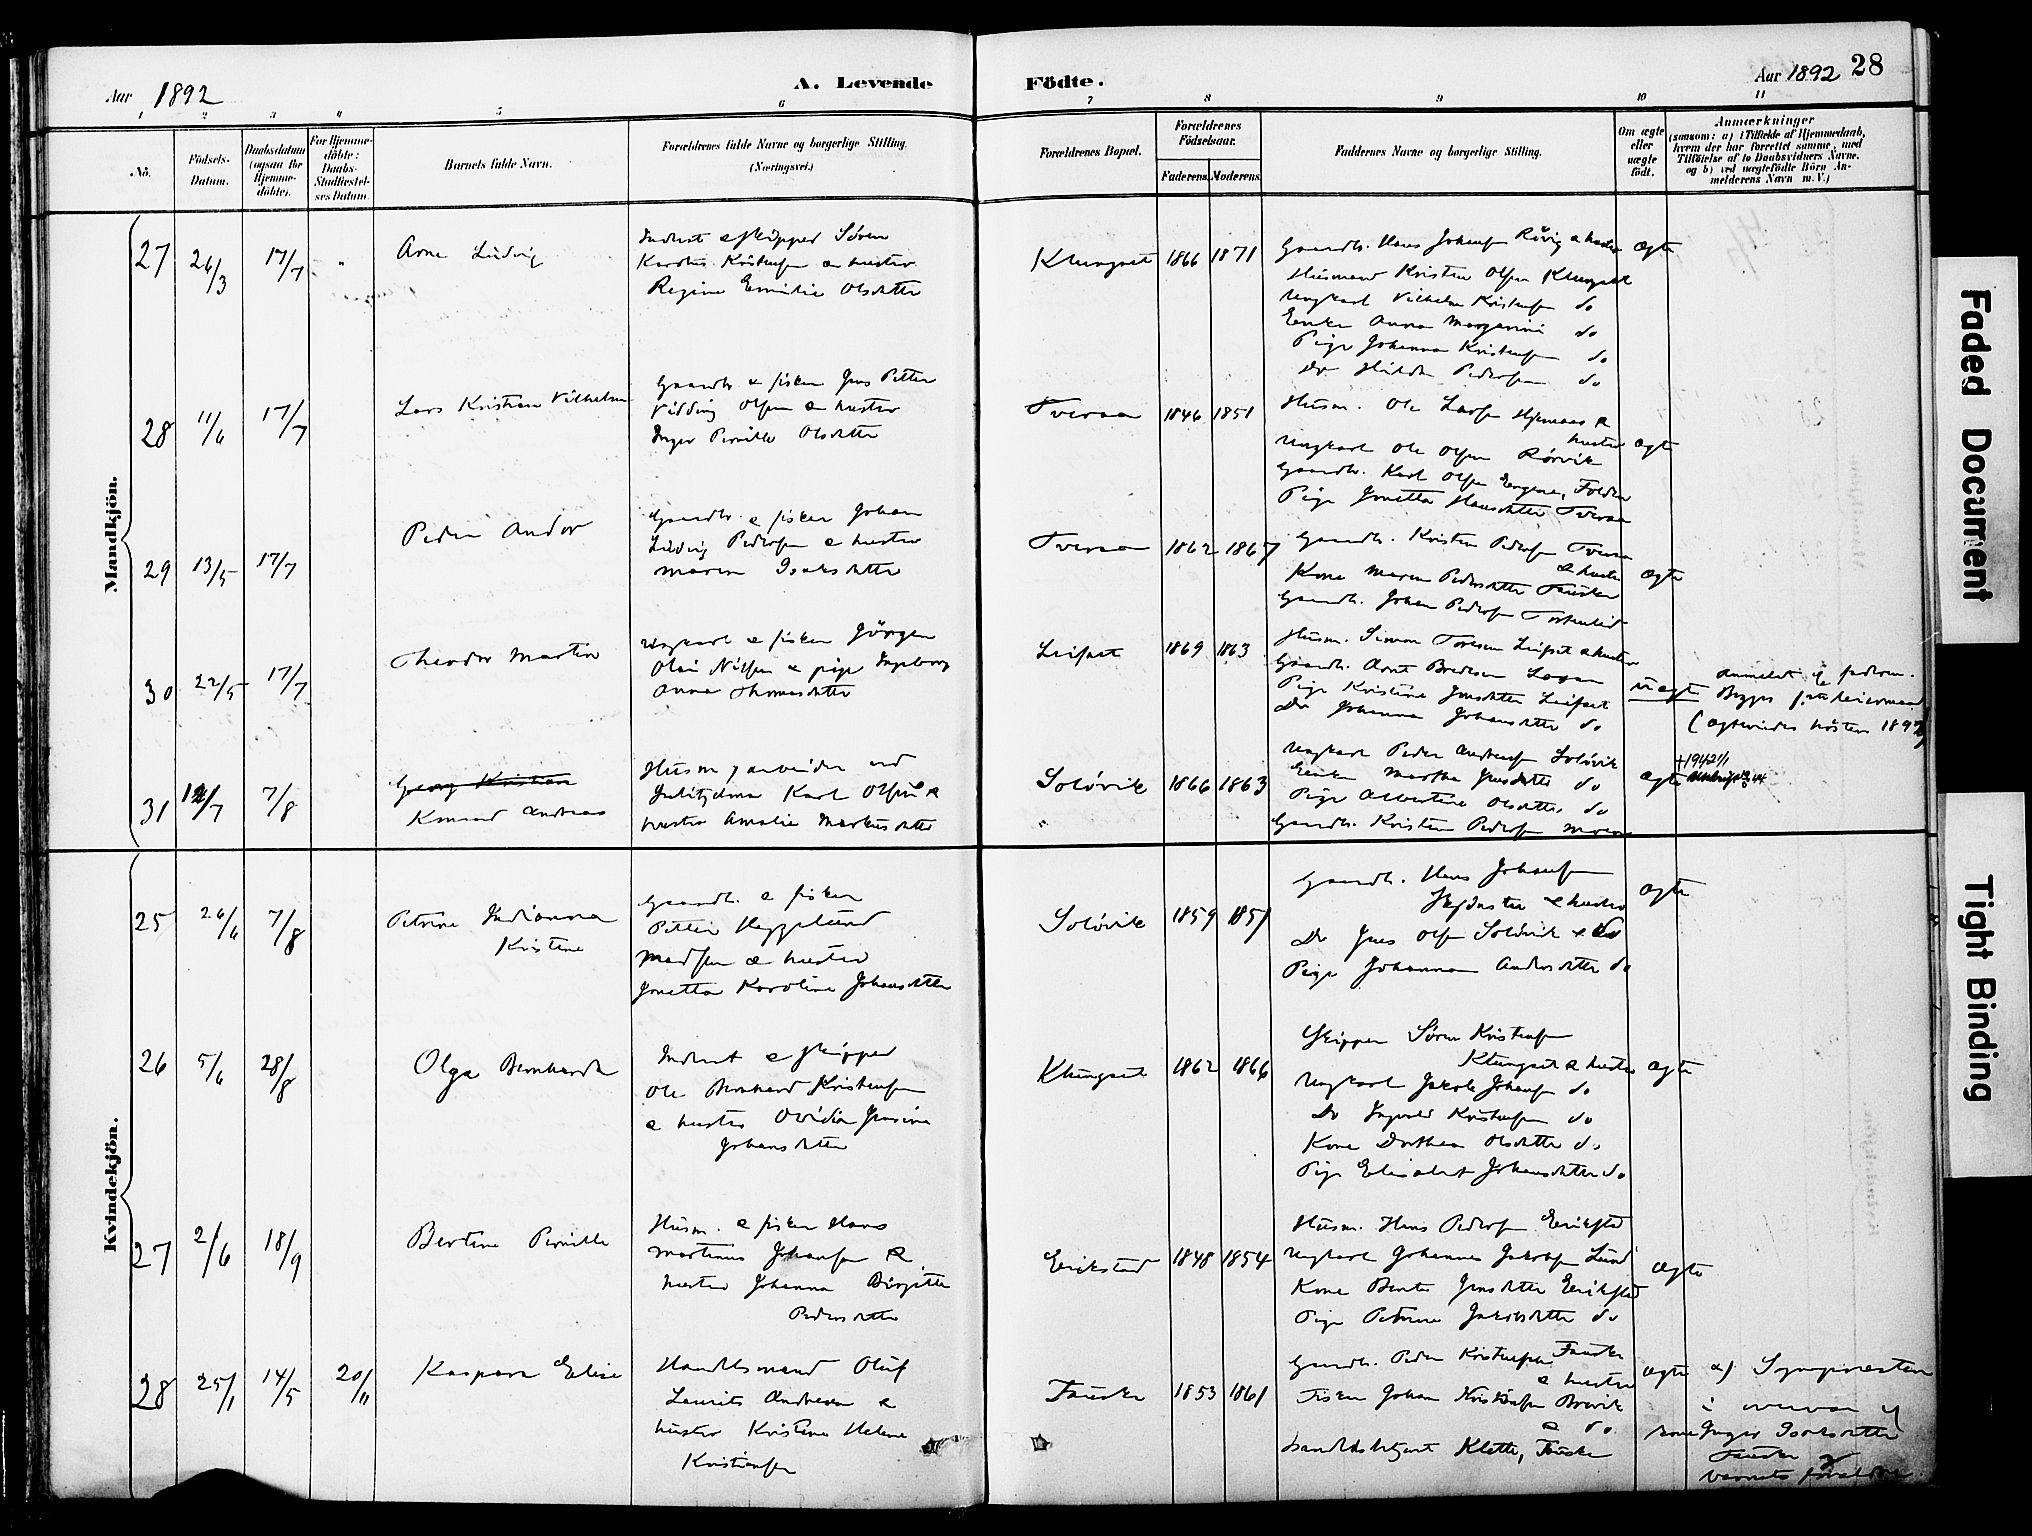 Aar 1892
A. Levende
Födte.
Aar 1892 28
1 2 3 4 5 6 7 8 9 10 11
No.
Födsels-
Datum.
Daabsdatum
(ogsaa for
Hjemme-
döbte).
For Hjemme-
döbte:
Daabs-
Stadfæstel-
ses Datum.
Barnets fulde Navn.
Forældrenes fulde Navne og borgerlige Stilling.
(Næringsvei.)
Forældrenes Bopæl.
Forældrenes
Födselsaar.
Faderens. Moderens.
Faddernes Navne og borgerlige Stilling.
Om ægte
eller
uægte
födt.
Anmærkninger
(saasom: a) i Tilfælde af Hjemmedaab,
hvem der har forrettet samme, med
Tilföielse af to Daabsvidners Navne,
og b) ved uægtefödte Börn An-
melderens Navn m. V.)
Mandkjön.
27 26/3 17/7 "
Arne Ludvig
Inderst & skipper Søren
Kristensen & hustro
Regine Emilie Olsdatter
Klungset 1866 1871
Gaardb. Hans Johansen Røvig & hustro
Husmand Kristen Olsen Klungset
Ungkarl Vilhelm Kristensen do
Enke Anna do
Pige Johanna Kristensen do
Do Hilda Pedersen do
ægte
28 11/6 17/7
Lars Kristian Vilhelm
Gaardb. & fisker Jens Petter
Olsen & hustro
Inger Pernille Olsdatter
Tveraa 1846 1851
Husm. Ole Larsen &
hustro
Ungkarl Ole Olsen Rørvik
Gaardb. Karl Olsen
Pige Jonetta Hansdatter Tveraa
ægte
29 13/5 17/7
Peder Andor
Gaardb. & fisker Johan
Ludvig Pedersen & hustro
Maren Isaksdatter
Tveraa 1862 1867
Gaardb. Kristen Pedersen Tveraa
& hustro
Kone Maren Pedersdatter Fauske
Gaardb. Johan Pedersen
ægte
30 22/5 17/7
Theodor Martin
Ungkarl & fisker Jörgen
Olai Nilsen & pige Ingeborg
Anna Thomasdatter
Leifset 1869 1863
Husm. Simon Toresen Leifset & hustro
Gaardb. Arnt Bredesen
Pige Kristine Jensdatter Leifset
Do Johanna Johansdatter do
uægte
anmeldt af faderen.
Begges 1ste leiermaal
31 12/7 7/8
Georg Kristian
Konrad Andreas
Husm & arbeider ved
Sulitjelma Karl Olsen &
hustro Amalie Markusdatter
Soløvik 1866 1863
Ungkarl Peder Andreasen Soløvik
Enke Martha Jensdatter do
Pige Albertine Olsdatter do
Gaardb. Kristen Pedersen
ægte
+1942
Kvindekjön.
25 26/6 7/8
Petrine Indianna
Kristine
Gaardb. & fisker
Petter Heggelund
Madsen & hustro
Jonetta Karoline Johansdatter
Soløvik 1859 1857
Gaardb. Hans Johansen
& hustro
Do Jens Olsen Soløvik & do
Pige Johanna Andersdatter do
ægte
26 5/6 28/8
Olga Bernharda
Inderst & skipper
Ole Bernhard Kristensen
& hustro Ovidia Jensine
Johansdatter
Klungset 1862 1866
Skipper Søren Kristensen
Klungset & hustro
Ungkarl Jakob Johansen do
Do Ingvald Kristensen do
Kone Dorthea Olsdatter do
Pige Elisabet Johansdatter do
ægte
27 2/6 18/9
Bertine Pernille
Husm. & fisker Hans
Martinus Johansen &
hustro Johanna Birgitte
Pedersdatter
Erikstad 1848 1854
Husm. Hans Pedersen Erikstad
Ungkarl Johannes Jakobsen Lund
Kone Berte Jensdatter Erikstad
Pige Petrine Jakobsdatter do
ægte
28 25/1 14/5 20/11
Kaspara Elise
Handelsmand Oluf
Laurits Andresen &
hustro Kristine Helene
Kristiansen
Fauske 1853 1861
Gaardb. Peder Kristensen Fauske
& hustro
Fisker Johan Kristensen Brevik
& do
Handelsbetjent Klette, Fauske
ægte
a) Sognepresten
i overvær af
kone Inger Isaksdatter
Fauske &
barnets forældre.
Faded Document
Tight Binding